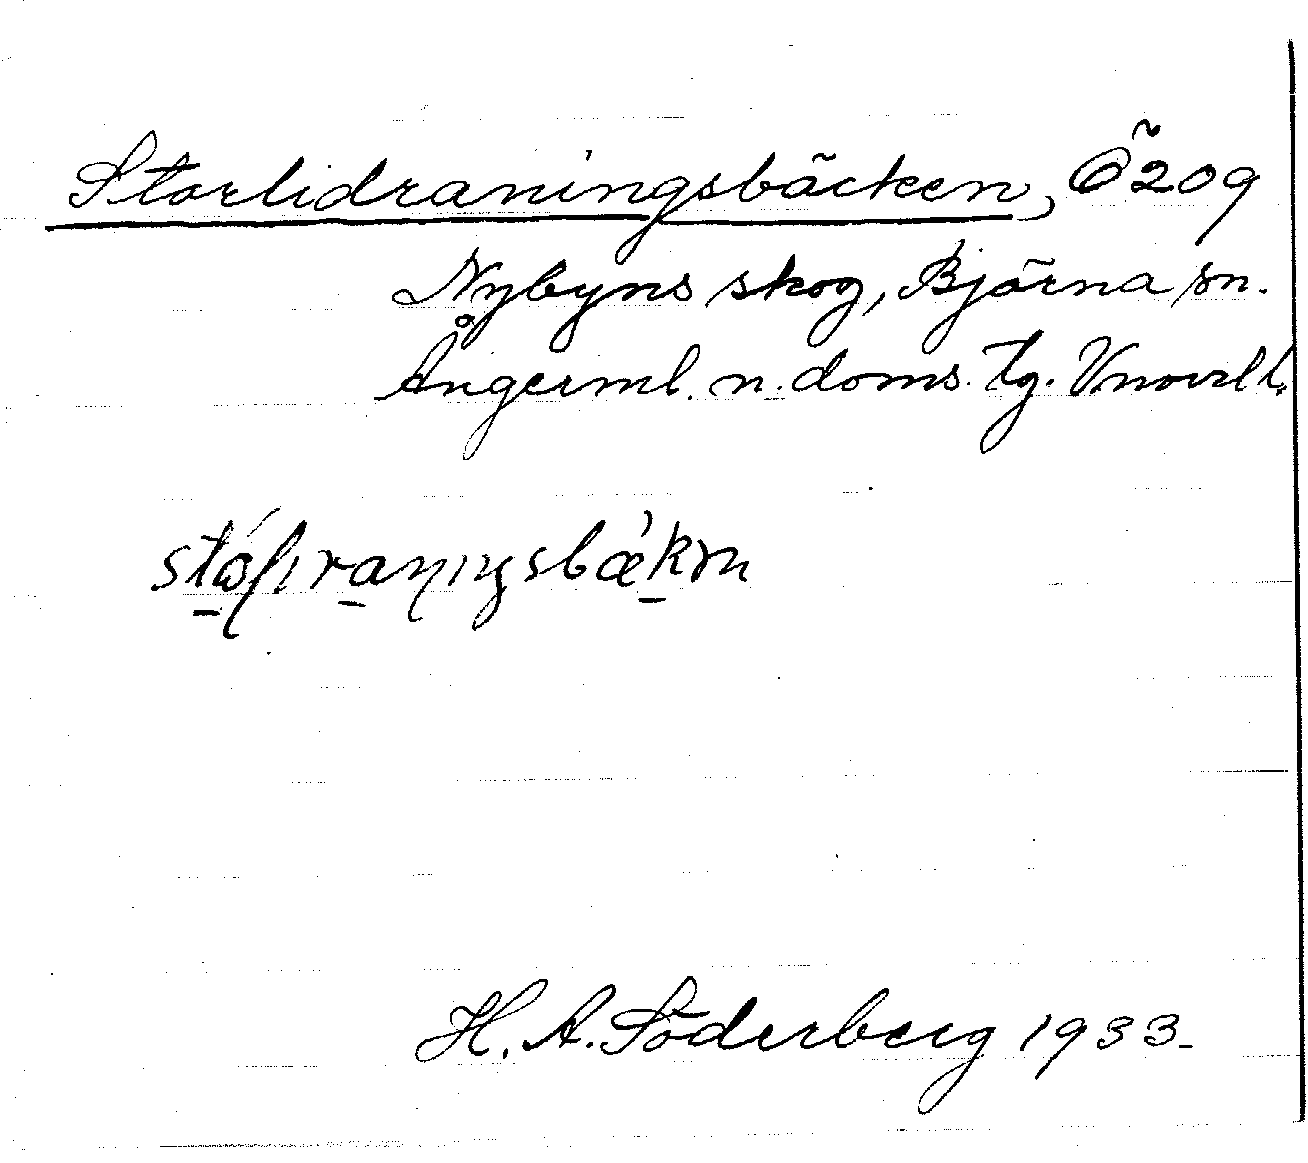 Storlidraningsbäcken, Ö209
Nybyns skog, Björna sn.
Ångerml. n. doms. tg. Västernorrl l.
H. A. Söderberg 1933.